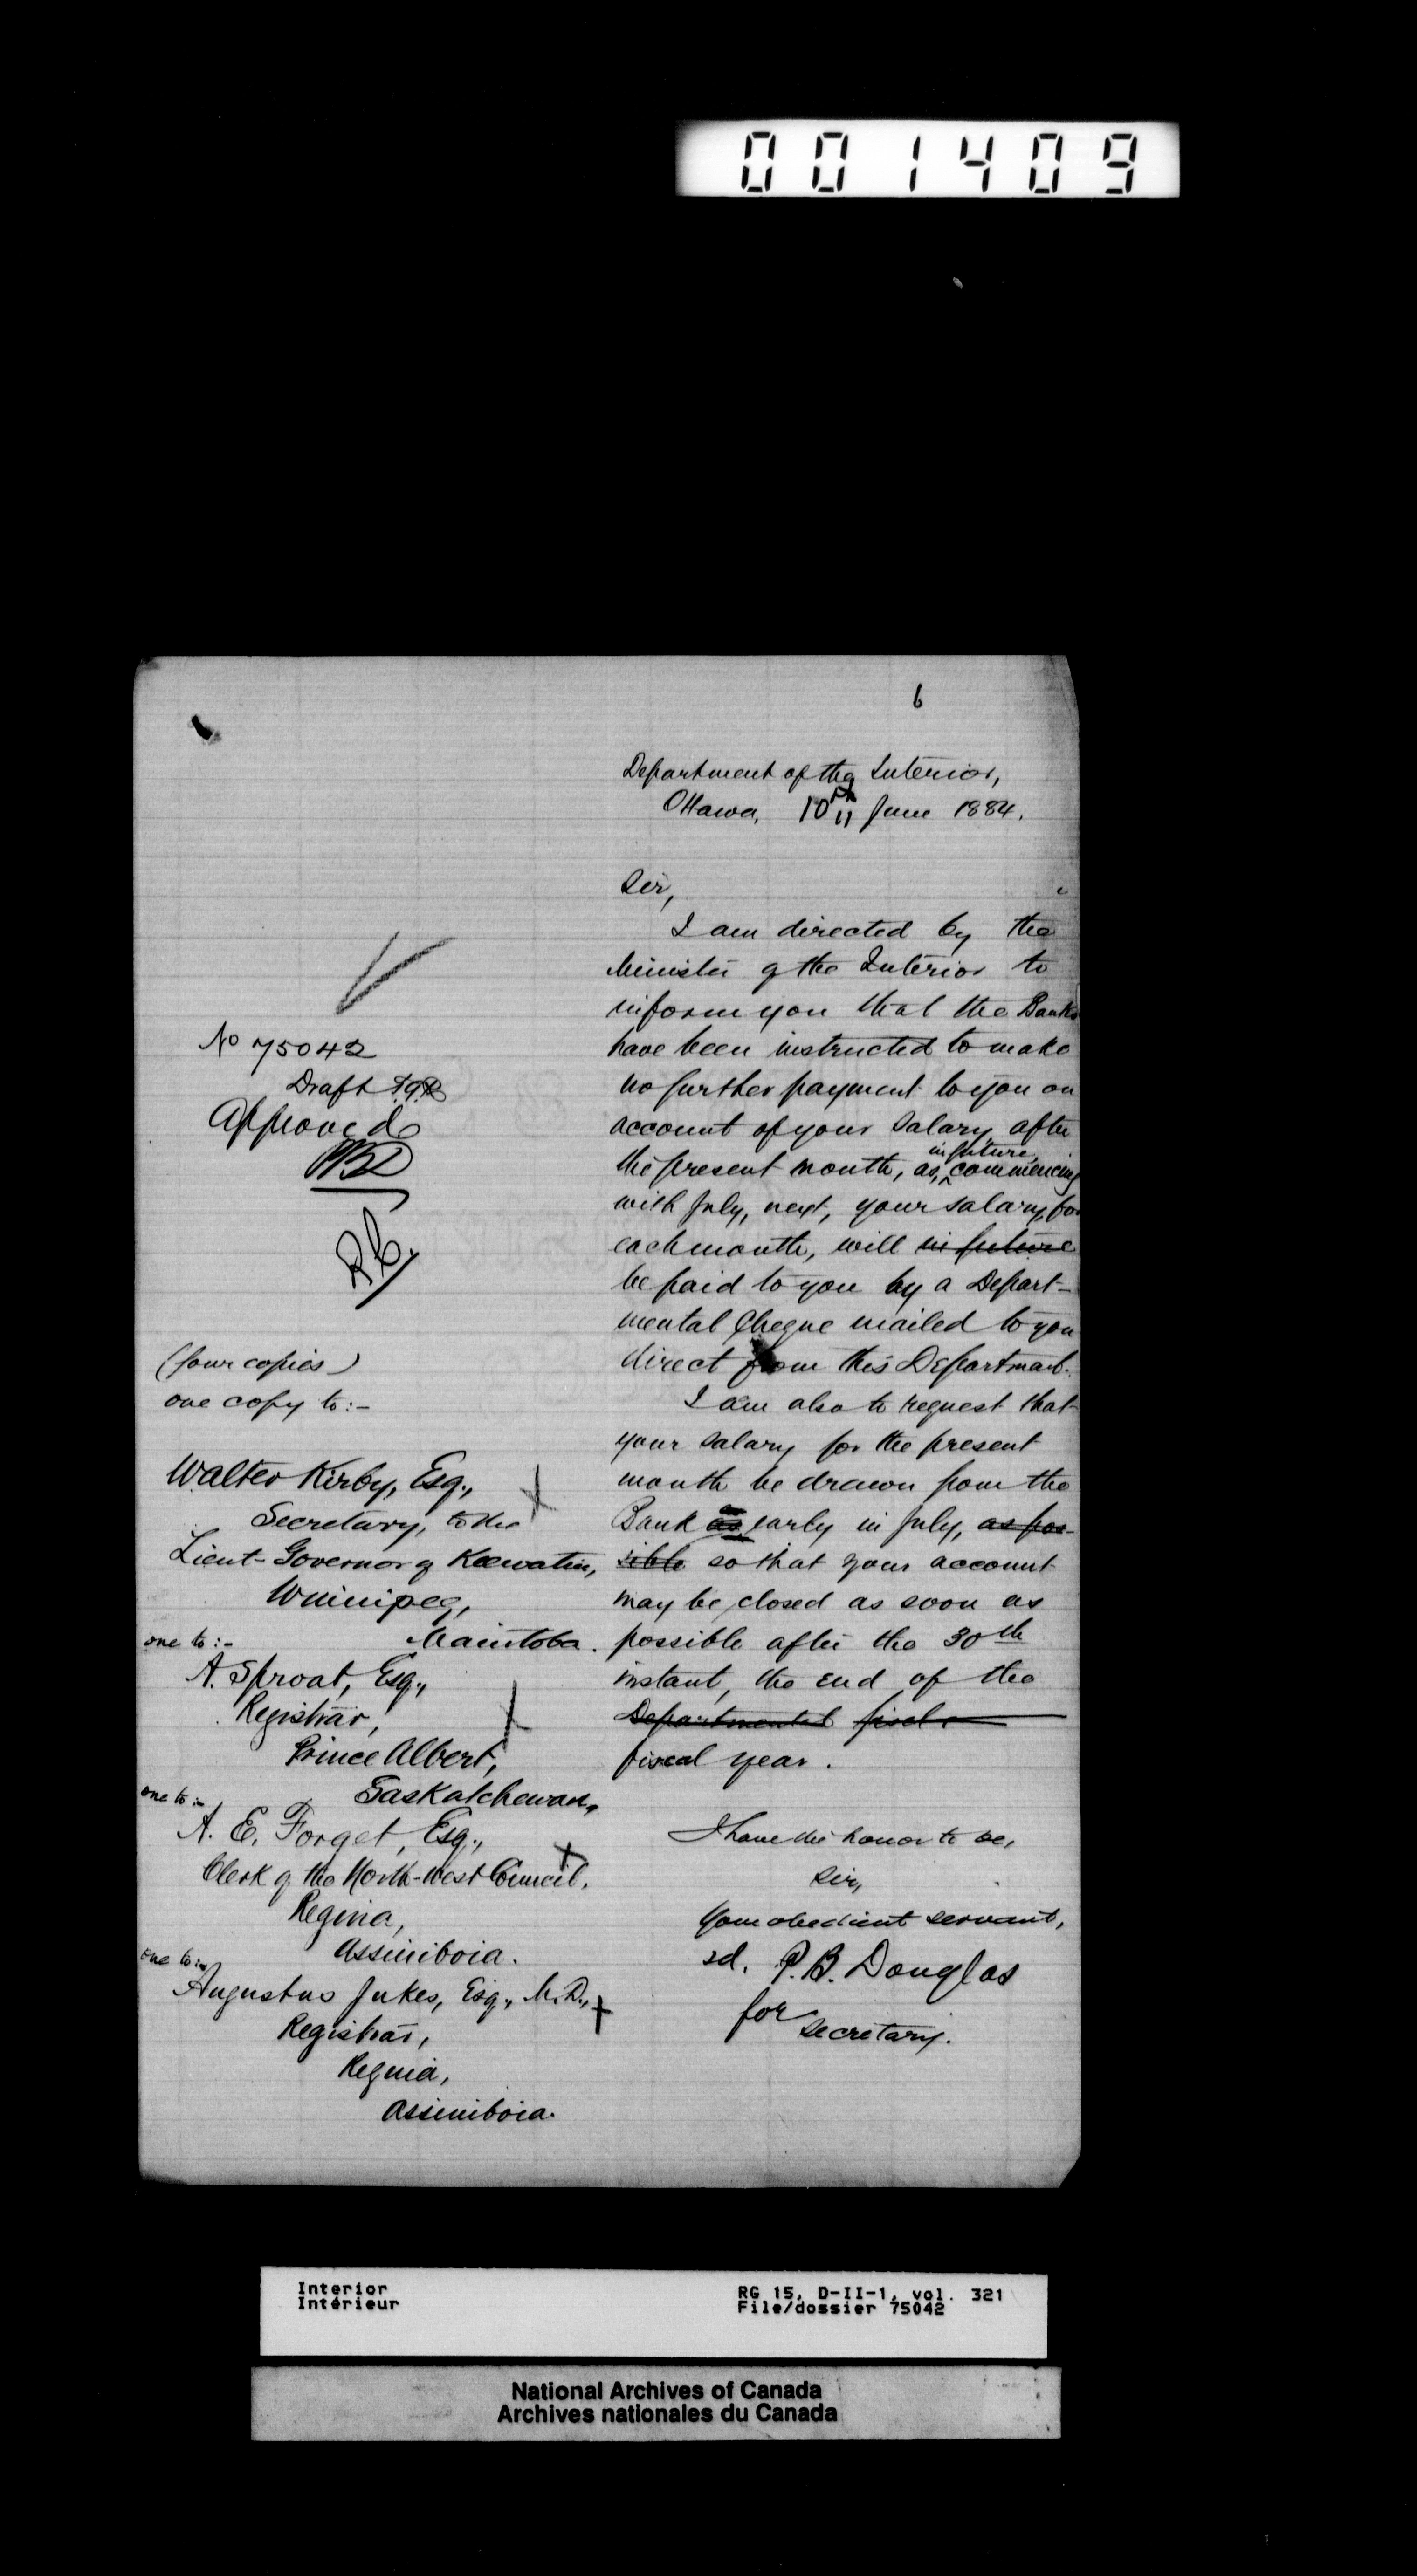 001409
6
Department of the Interior,
Ottawa, 10th June 1884.
Sir,
I am directed by the
Minister of the Interior to
inform you that the Banks
have been instructed to make
no further payment to you on
account of your salary after
the present month, as, in future, commencing
with July, next, your salary, for
each month, will in future
be paid to you by a Depart-
mental Cheque mailed to you
direct from this Department.
I am also to request that
your salary for the present
month be drawn from the
Bank as early in July, as pos-
sible so that your account
may be closed as soon as
possible after the 30th
instant, the end of the
Departmental
fiscal year.
I have the honor to be,
Sir,
Your obedient servant,
sd. P. B. Douglas
for Secretary.
No 75042
Draft
Approved
(four copies)
one copy to:-
Walter Kirby, Esq.,
Secretary, to the
Lieut-Governor of Keewatin,
Winnipeg,
Manitoba.
one to:-
A. Sproat, Esq.,
Registrar,
Prince Albert,
Saskatchewan,
one to:-
A. E. Forget, Esq.,
Clerk of the North-West Council,
Regina,
Assiniboia.
one to:-
Augustus Jukes, Esq., M.D.,
Registrar,
Regina,
Assiniboia.
Interior
Intérieur
RG 15, D-II-1, vol. 321
File/dossier 75042
National Archives of Canada
Archives nationales du Canada